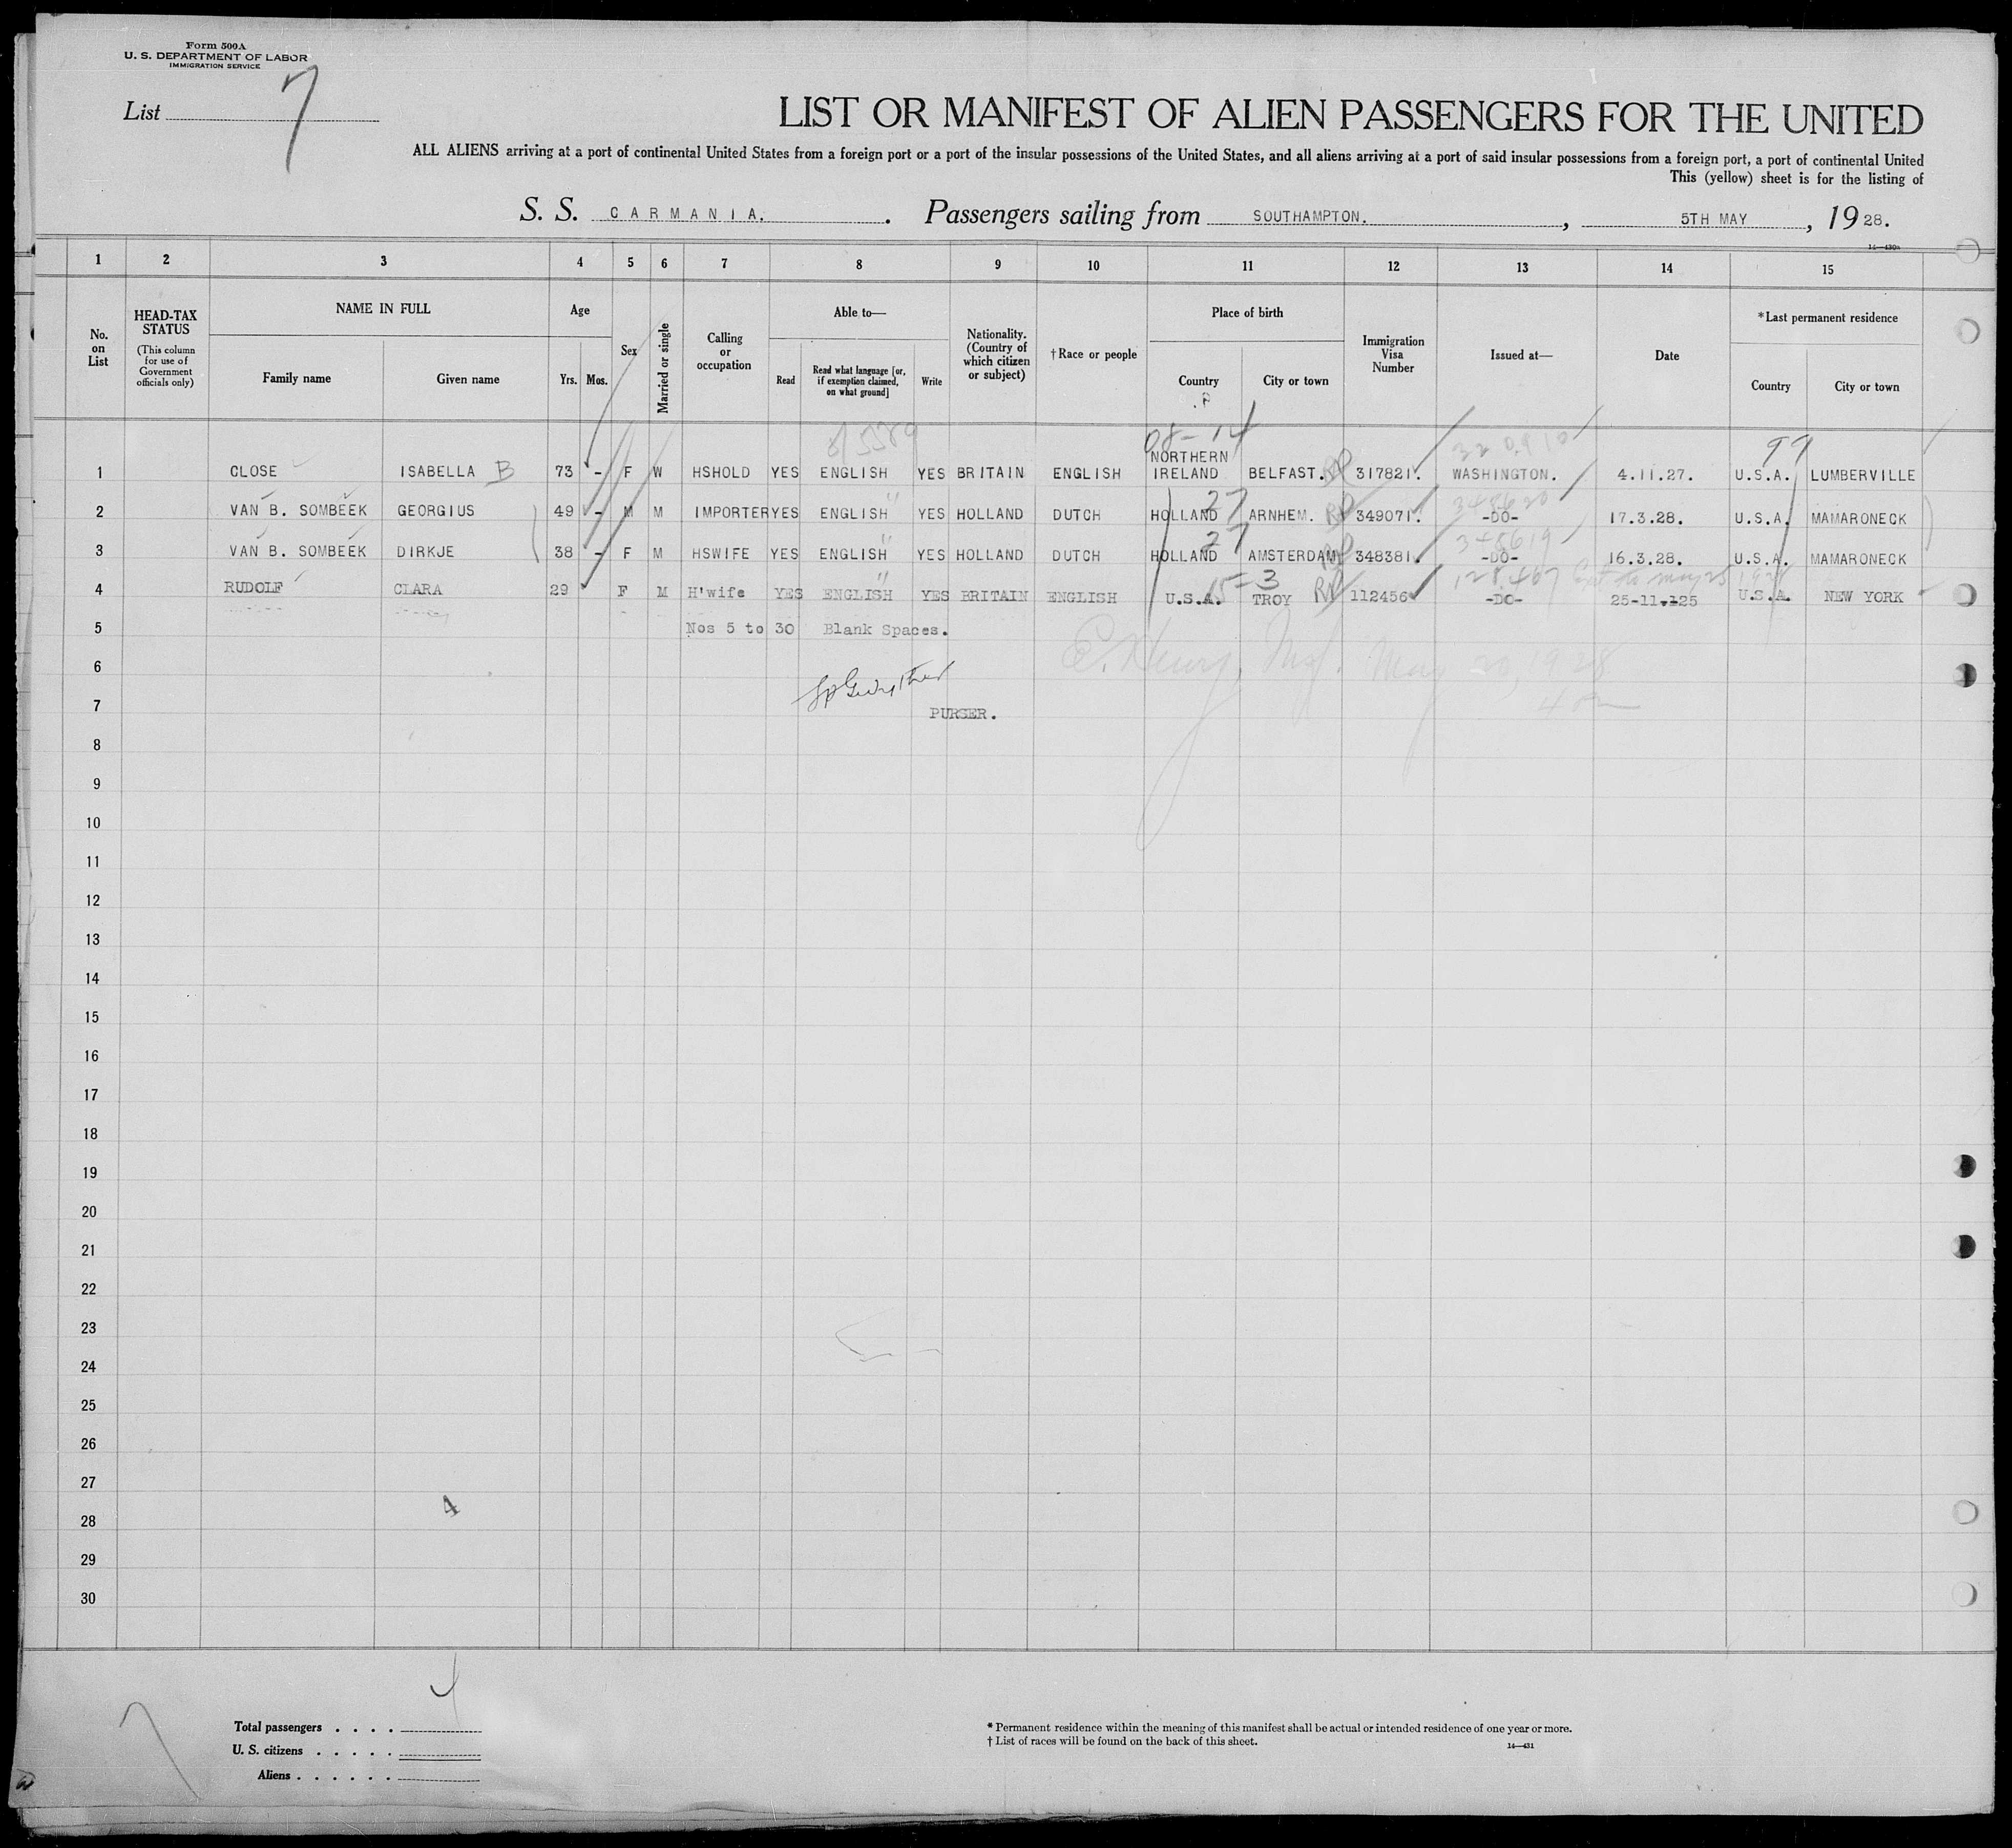 Form 500A
U. S. DEPARTMENT OF LABOR
IMMIGRATION SERVICE
List 7
LIST OR MANIFEST OF ALIEN PASSENGERS FOR THE UNITED
ALL ALIENS arriving at a port of continental United States from a foreign port or a port of the insular possessions of the United States, and all aliens arriving at a port of said insular possessions from a foreign port, a port of continental United
This (yellow) sheet is for the listing of
S. S. CARMANIA. Passengers sailing from SOUTHAMPTON. , 5TH MAY , 19 28.
14—430a
1 2 3 4 5 6 7 8 9 10 11 12 13 14 15
No. on List
HEAD-TAX STATUS
(This column for use of Government officials only)
NAME IN FULL
Family name Given name
Age
Yrs. Mos.
Sex
Married or single
Calling or occupation
Able to—
Read
Read what language [or, if exemption claimed, on what ground]
Write
Nationality. (Country of which citizen or subject)
†Race or people
Place of birth
Country City or town
Immigration Visa Number
Issued at—
Date
*Last permanent residence
Country City or town
08-14 99
1 CLOSE ISABELLA B 73 - F W HSHOLD YES ENGLISH YES BRITAIN ENGLISH NORTHERN IRELAND BELFAST. 317821. WASHINGTON. 4.11.27. U.S.A. LUMBERVILLE
2 VAN B. SOMBEEK GEORGIUS 49 - M M IMPORTER YES ENGLISH " YES HOLLAND DUTCH HOLLAND 27 ARNHEM. 349071. 348620 -DO- 17.3.28. U.S.A. MAMARONECK
3 VAN B. SOMBEEK DIRKJE 38 - F M HSWIFE YES ENGLISH " YES HOLLAND DUTCH HOLLAND 27 AMSTERDAM 348381. 348619 -DO- 16.3.28. U.S.A. MAMARONECK
4 RUDOLF CLARA 29 F M H'wife YES ENGLISH " YES BRITAIN ENGLISH U.S.A. 15-3 TROY 112456 128,467 -DO- 25-11-125 U.S.A. NEW YORK
5 Nos 5 to 30 Blank Spaces.
6 May 20, 1928
7 PURSER.
8
9
10
11
12
13
14
15
16
17
18
19
20
21
22
23
24
25
26
27
4
28
29
30
4
Total passengers . . . .
U. S. citizens . . . . .
Aliens . . . . . .
* Permanent residence within the meaning of this manifest shall be actual or intended residence of one year or more.
† List of races will be found on the back of this sheet.
14—431